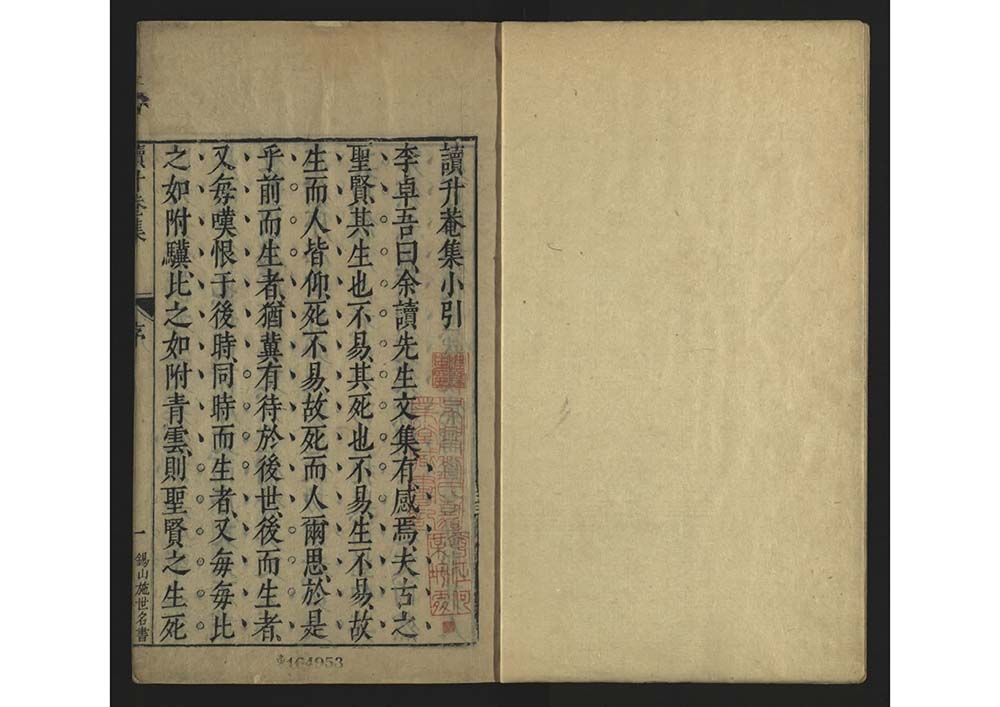 讀升菴集小引
李卓吾曰、余讀先生文集、有感焉、夫古之
聖賢、其生也不易、其死也不易、生不易、故
生而人皆仰、死不易、故死而人爾思、於是
乎前而生者、猶冀有待於後世、後而生者、
又每嘆恨于後時、同時而生者、又每每比
之如附驥、比之如附青雲、則聖賢之生死
讀升菴集
序
一
錫山施世名書
164953